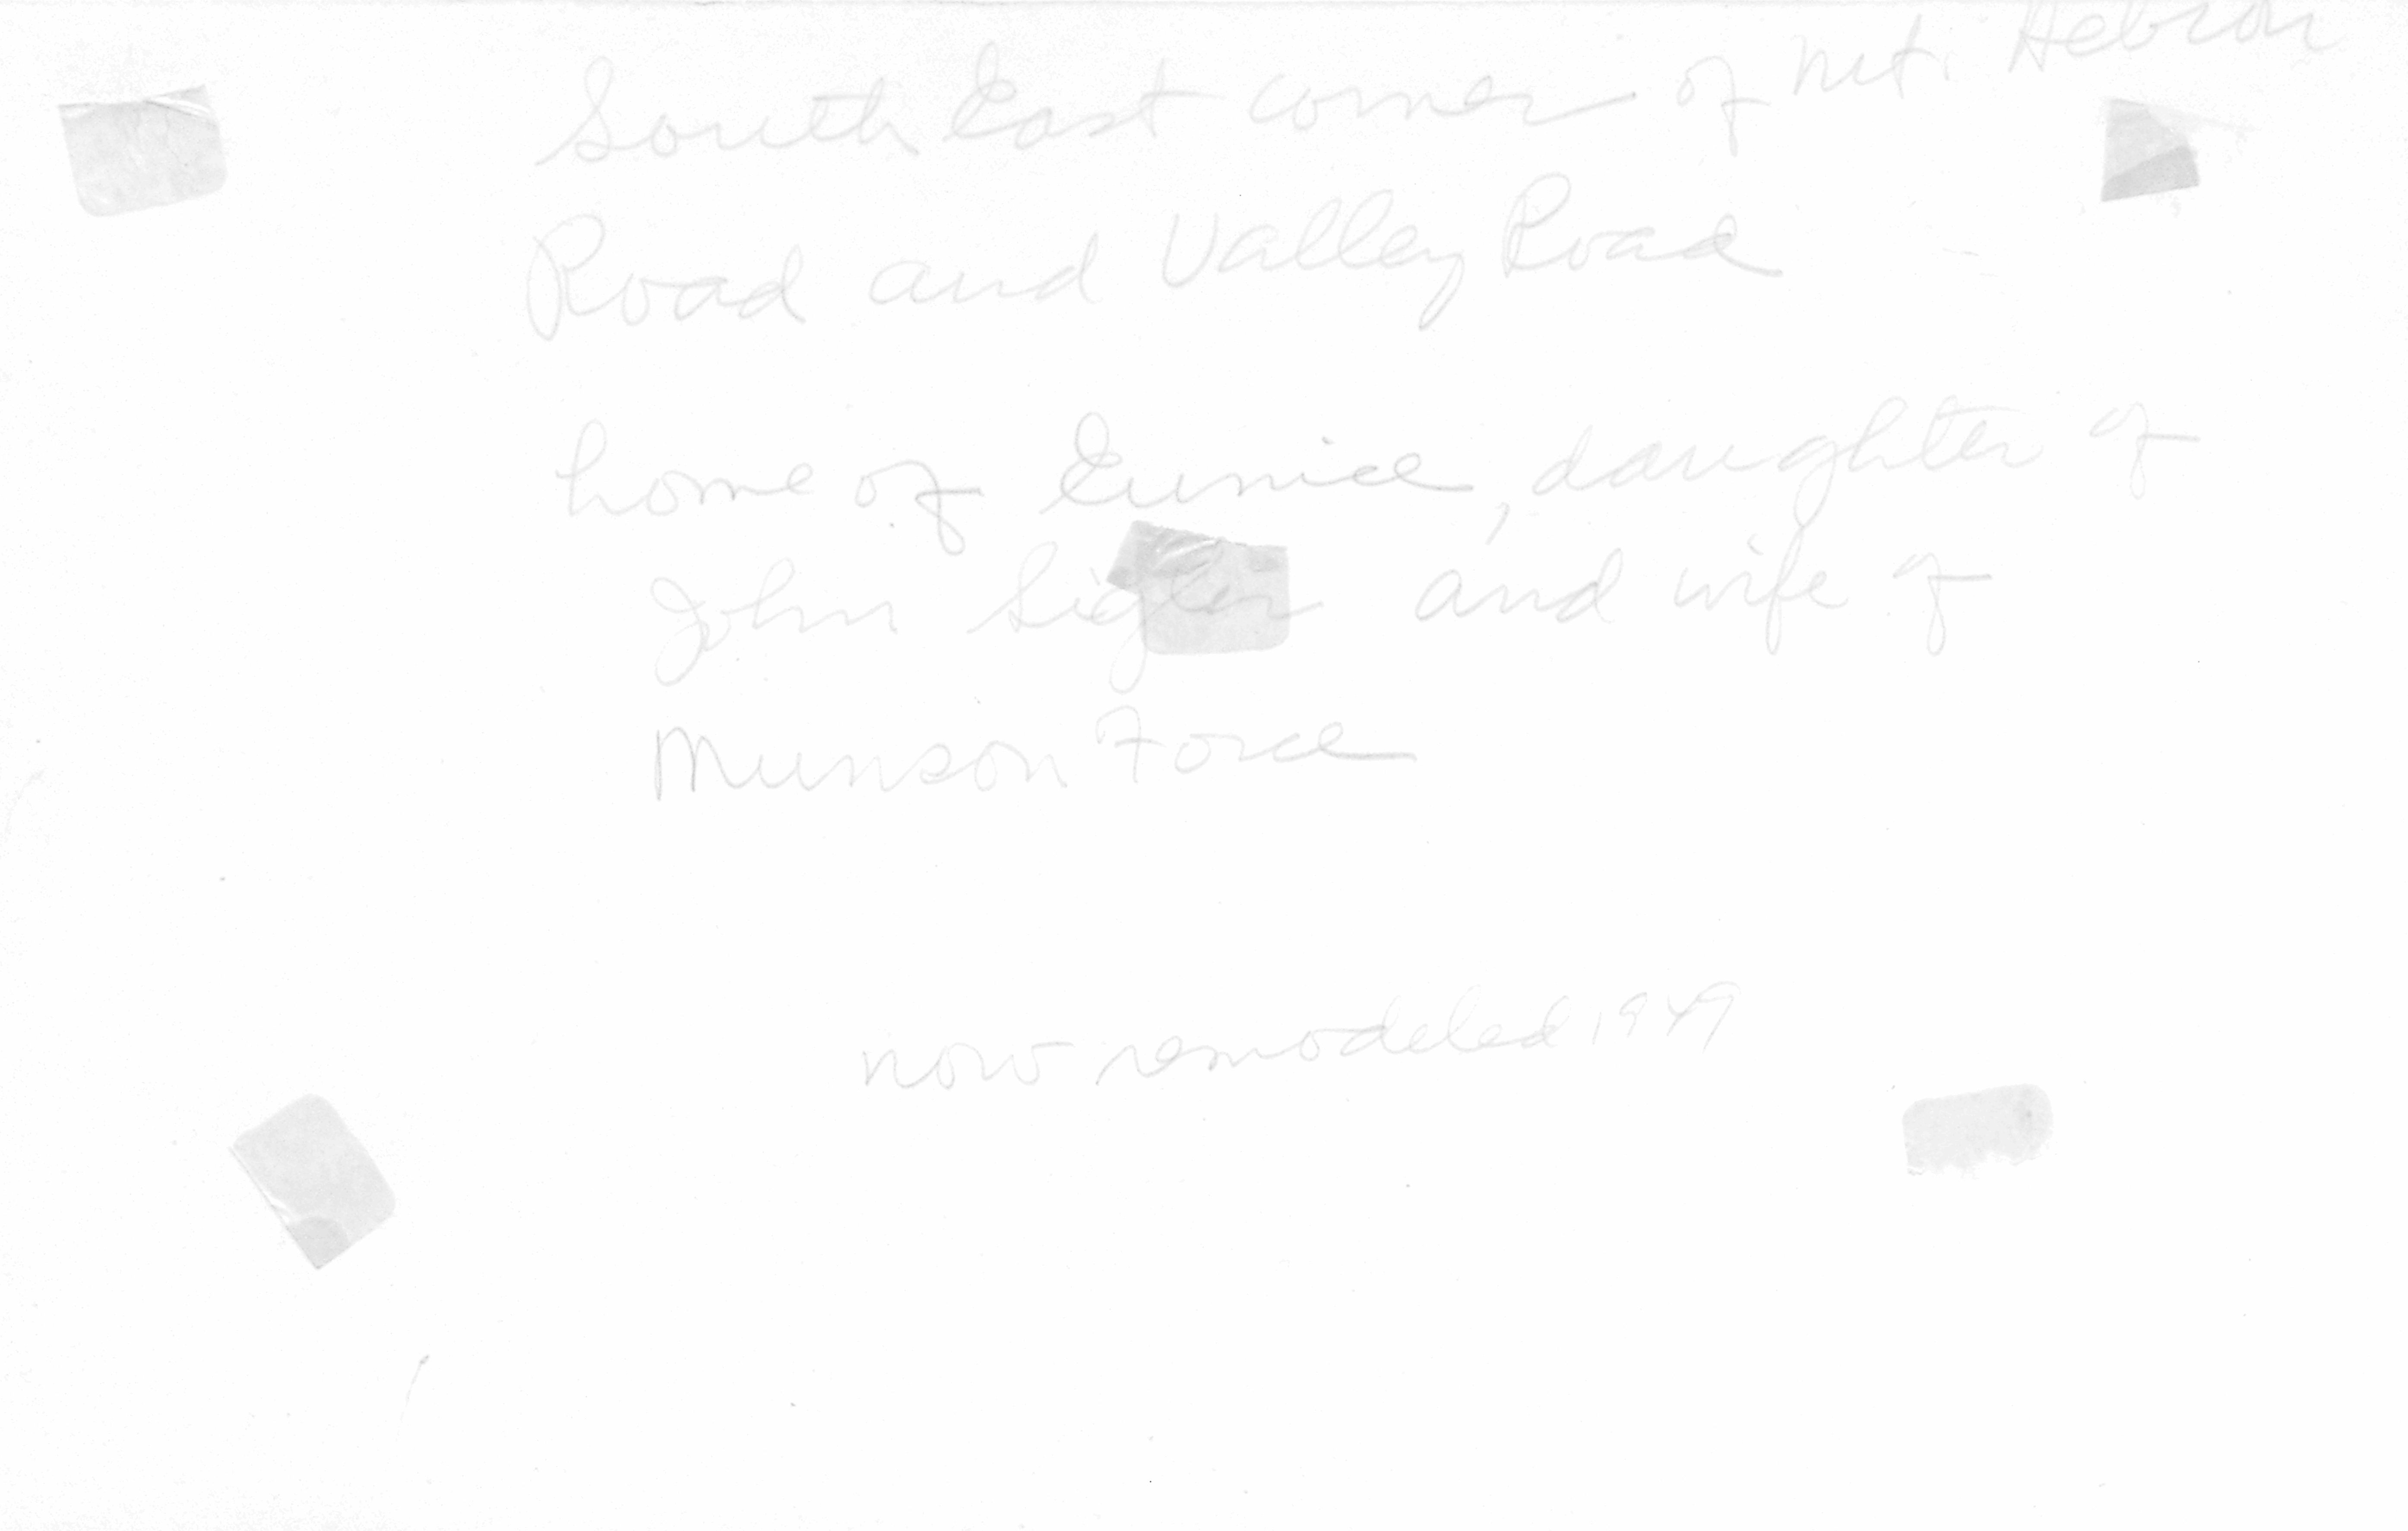 South East corner of Mt. Hebron
Road and Valley Road
home of Eunice, daughter of
John Sigler and wife of
Munson Force
now remodeled 1949